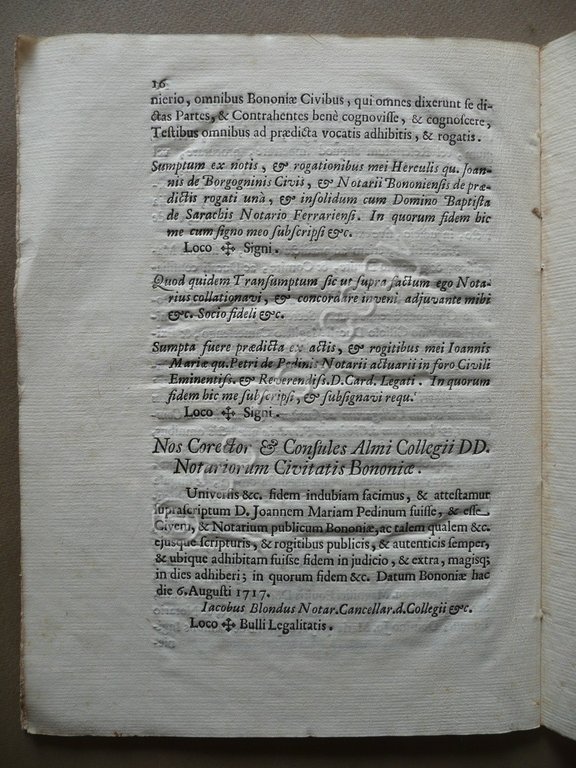 16
nierio, omnibus Bononiæ Civibus, qui omnes dixerunt se di-
ctas Partes, & Contrahentes benè cognovisse, & cognoscere,
Testibus omnibus ad prædicta vocatis adhibitis, & rogatis.
Sumptum ex notis, & rogationibus mei Herculis qu. Joan-
nis de Borgogninis Civis, & Notarii Bononiensis de præ-
dictis rogati unà, & insolidum cum Domino Baptista
de Sarachis Notario Ferrariensi. In quorum fidem hic
me cum signo meo subscripsi &c.
Loco ✣ Signi.
Quod quidem Transumptum sic ut supra factum ego Nota-
rius collationavi, & concordare inveni adjuvante mihi
&c. Socio fideli &c.
Sumpta fuere prædicta ex actis, & rogitibus mei Ioannis
Mariæ qu. Petri de Pedinis Notarii actuarii in foro Civili
Eminentiss. & Reverendiss. D. Card. Legati. In quorum
fidem hic me subscripsi, & subsignavi requ.
Loco ✣ Signi.
Nos Corector & Consules Almi Collegii DD.
Notariorum Civitatis Bononiæ.
Universis &c. fidem indubiam facimus, & attestamur
suprascriptum D. Joannem Mariam Pedinum fuisse, & esse
Civem, & Notarium publicum Bononiæ, ac talem qualem &c.
ejusque scripturis, & rogitibus publicis, & autenticis semper,
& ubique adhibitam fuisse fidem in judicio, & extra, magisq;
in dies adhiberi; in quorum fidem &c. Datum Bononiæ hac
die 6. Augusti 1717.
Iacobus Blondus Notar. Cancellar. d. Collegii &c.
Loco ✣ Bulli Legalitatis.